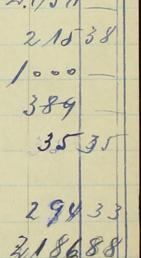 215 38
1000 —
389 —
35 35
294 33
2186 88